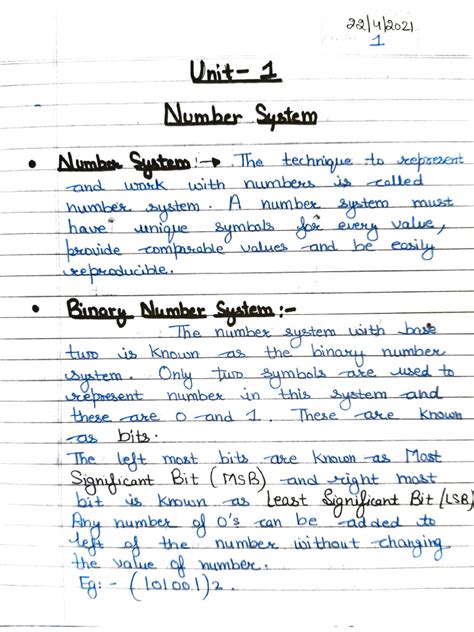 22/4/2021
1
Unit- 1
Number System
• Number System:→ The technique to represent
and work with numbers is called
number system. A number system must
have unique symbols for every value,
provide comparable values and be easily
reproducible.
• Binary Number System:-
The number system with base
two is known as the binary number
system. Only two symbols are used to
represent number in this system and
these are 0 and 1. These are known
as bits.
The left most bits are known as Most
Significant Bit (MSB) and right most
bit is known as Least Significant Bit (LSB)
Any number of 0's can be added to
left of the number without changing
the value of number.
Eg:- (101001)2.